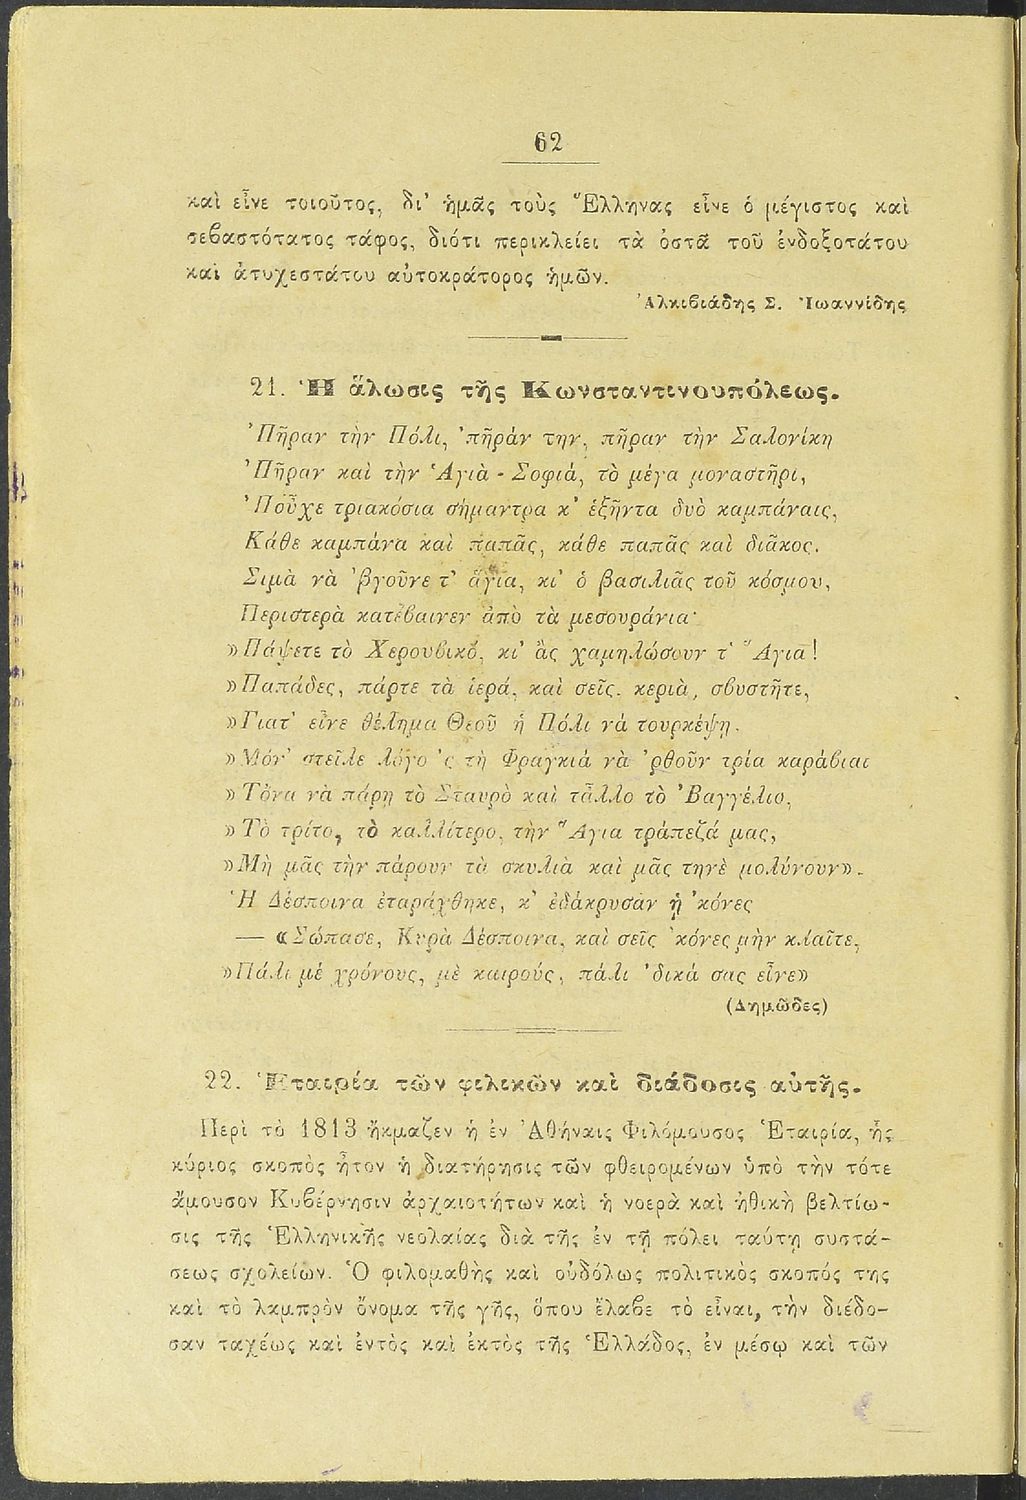 62
καὶ εἶνε τοιοῦτος, δι' ἡμᾶς τοὺς Ἕλληνας εἶνε ὁ μέγιστος καὶ
σεβαστότατος τάφος, διότι περικλείει τὰ ὀστᾶ τοῦ ἐνδοξοτάτου
καὶ ἀτυχεστάτου αὐτοκράτορος ἡμῶν.
Ἀλκιβιάδης Σ. Ἰωαννίδης
21. Ἡ ἅλωσις τῆς Κωνσταντινουπόλεως.
Πῆραν τὴν Πόλι, 'πῆράν την, πῆραν τὴν Σαλονίκη
Πῆραν καὶ τὴν Ἁγιὰ - Σοφιά, τὸ μέγα μοναστῆρι,
Ποὖχε τριακόσια σήμαντρα κ' ἑξῆντα δυὸ καμπάναις,
Κάθε καμπάνα καὶ παπᾶς, κάθε παπᾶς καὶ διᾶκος.
Σιμὰ νὰ 'βγοῦνε τ' ἅγια, κι' ὁ βασιλιᾶς τοῦ κόσμου,
Περιστερὰ κατέβαινεν ἀπὸ τὰ μεσουράνια·
»Πάψετε τὸ Χερουβικό, κι' ἂς χαμηλώσουν τ' Ἅγια!
»Παπάδες, πάρτε τὰ ἱερά, καὶ σεῖς. κεριὰ, σβυστῆτε,
»Γιατ' εἶνε θέλημα Θεοῦ ἡ Πόλι νὰ τουρκέψῃ.
»Μόν' στεῖλε λόγο 'ς τὴ Φραγκιά νὰ 'ρθοῦν τρία καράβιαι
»Τὄνα νὰ πάρῃ τὸ Σταυρὸ καὶ τἆλλο τὸ Βαγγέλιο,
»Τὸ τρίτο, τὸ καλλίτερο, τὴν Ἅγια τράπεζά μας,
»Μὴ μᾶς τὴν πάρουν τὰ σκυλιὰ καὶ μᾶς τηνὲ μολύνουν».
Ἡ Δέσποινα ἐταράχθηκε, κ' ἐδάκρυσαν ᾑ 'κόνες
— «Σώπασε, Κυρὰ Δέσποινα, καὶ σεῖς 'κόνες μὴν κλαῖτε,
»Πάλι μὲ χρόνους, μὲ καιρούς, πάλι 'δικά σας εἶνε»
(Δημῶδες)
22. Ἑταιρέα τῶν φιλικῶν καὶ διάδοσις αὐτῆς.
Περὶ τὸ 1813 ἤκμαζεν ἡ ἐν Ἀθήναις Φιλόμουσος Ἑταιρία, ἧς
κύριος σκοπὸς ἦτον ἡ διατήρησις τῶν φθειρομένων ὑπὸ τὴν τότε
ἄμουσον Κυβέρνησιν ἀρχαιοτήτων καὶ ἡ νοερὰ καὶ ἠθικὴ βελτίω-
σις τῆς Ἑλληνικῆς νεολαίας διὰ τῆς ἐν τῇ πόλει ταύτῃ συστά-
σεως σχολείων. Ὁ φιλομαθὴς καὶ οὐδόλως πολιτικὸς σκοπός της
καὶ τὸ λαμπρὸν ὄνομα τῆς γῆς, ὅπου ἔλαβε τὸ εἶναι, τὴν διέδο-
σαν ταχέως καὶ ἐντὸς καὶ ἐκτὸς τῆς Ἑλλάδος, ἐν μέσῳ καὶ τῶν